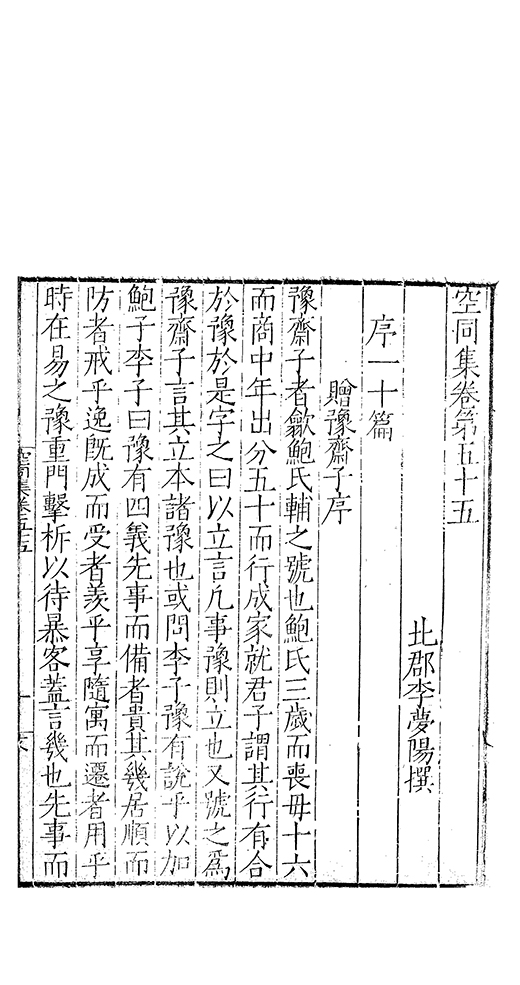 空同集卷第五十五
北郡李夢陽撰
序一十篇
贈豫齋子序
豫齋子者歙鮑氏輔之號也鮑氏三歲而喪母十六
而商中年出分五十而行成家就君子謂其行有合
於豫於是字之曰以立言凡事豫則立也又號之爲
豫齋子言其立本諸豫也或問李子豫有說乎以加
鮑子李子曰豫有四義先事而備者貴其幾居順而
防者戒乎逸旣成而受者羨乎享隨寓而遷者用乎
時在易之豫重門擊柝以待暴客蓋言幾也先事而
空同集卷五十五
一